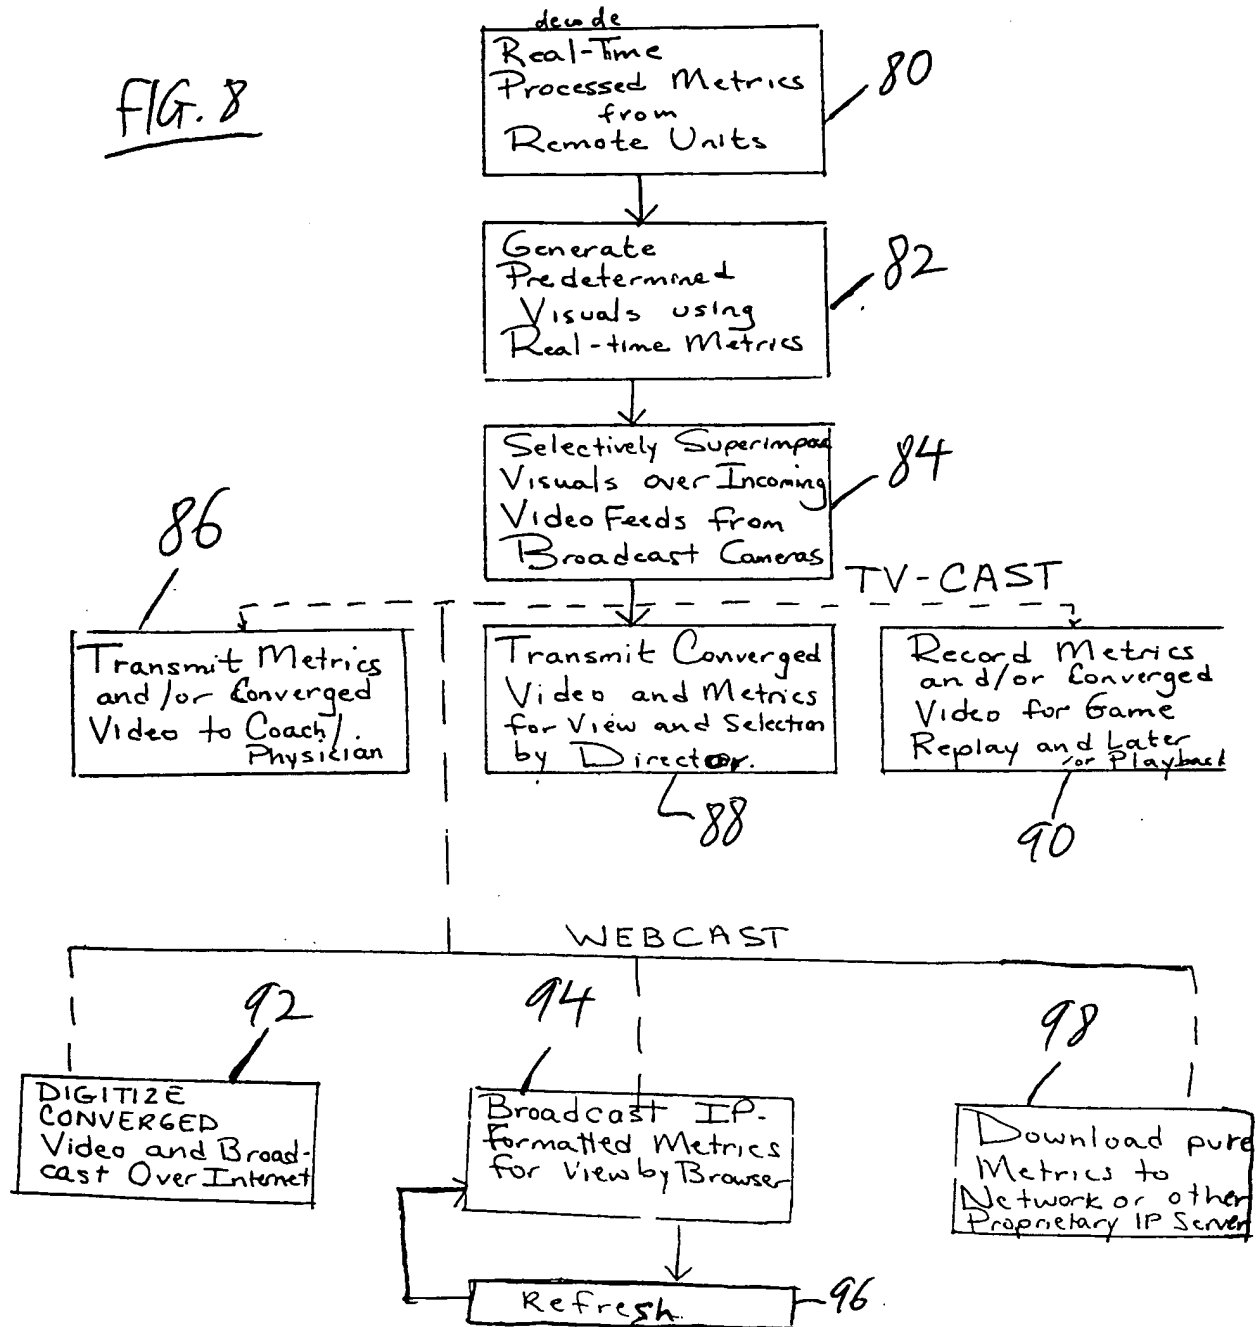 FIG. 8
decode
Real-Time
Processed Metrics
from
Remote Units
80
Generate
Predetermined
Visuals using
Real-time Metrics
82
Selectively Superimpose
Visuals over Incoming
Video Feeds from
Broadcast Cameras
84
TV-CAST
86
Transmit Metrics
and/or Converged
Video to Coach/
Physician
Transmit Converged
Video and Metrics
for View and Selection
by Director.
88
Record Metrics
and/or Converged
Video for Game
Replay and Later
/or Playback
90
WEBCAST
92
DIGITIZE
CONVERGED
Video and Broad-
cast Over Internet
94
Broadcast IP-
formatted Metrics
for View by Browser
Refresh
96
98
Download pure
Metrics to
Network or other
Proprietary IP Server